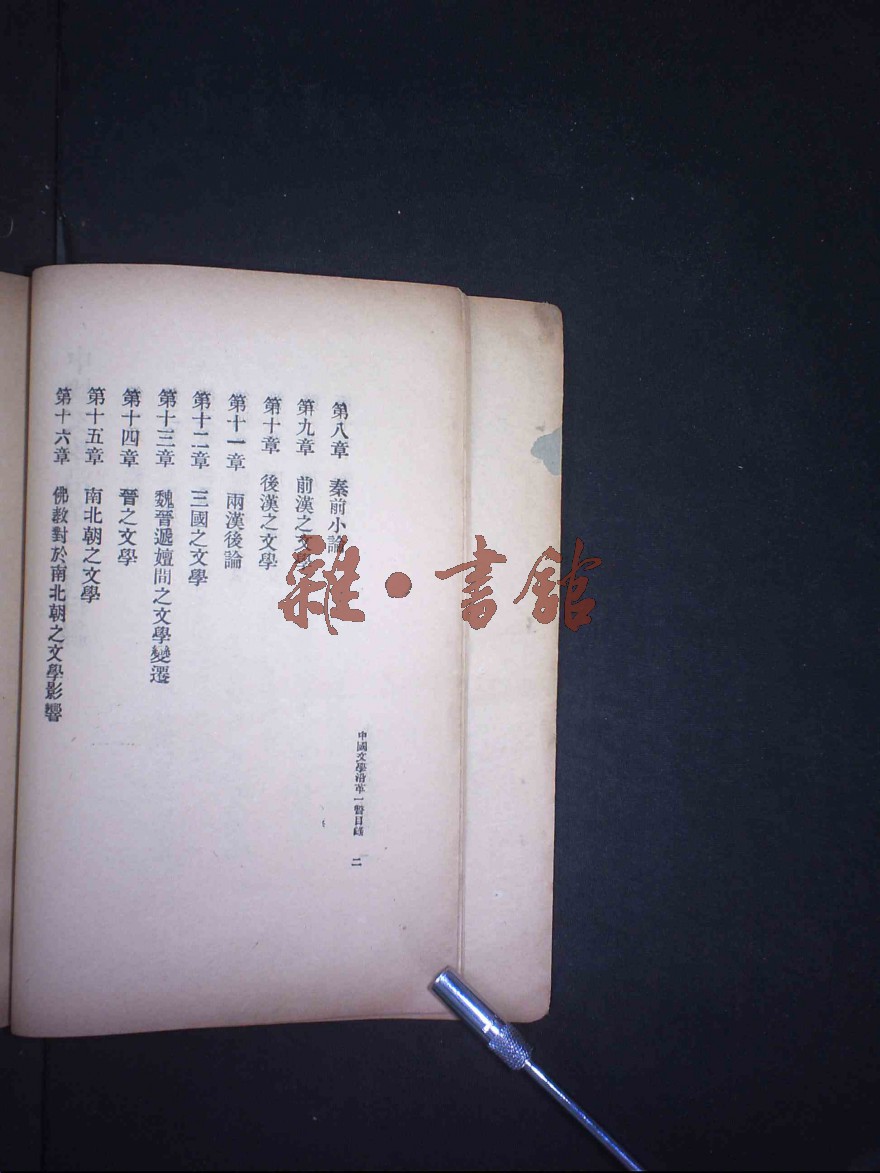 中國文學沿革一瞥目錄 二
第八章 秦前小論
第九章 前漢之文學
第十章 後漢之文學
第十一章 兩漢後論
第十二章 三國之文學
第十三章 魏晉遞嬗間之文學變遷
第十四章 晉之文學
第十五章 南北朝之文學
第十六章 佛教對於南北朝之文學影響
雜·書館